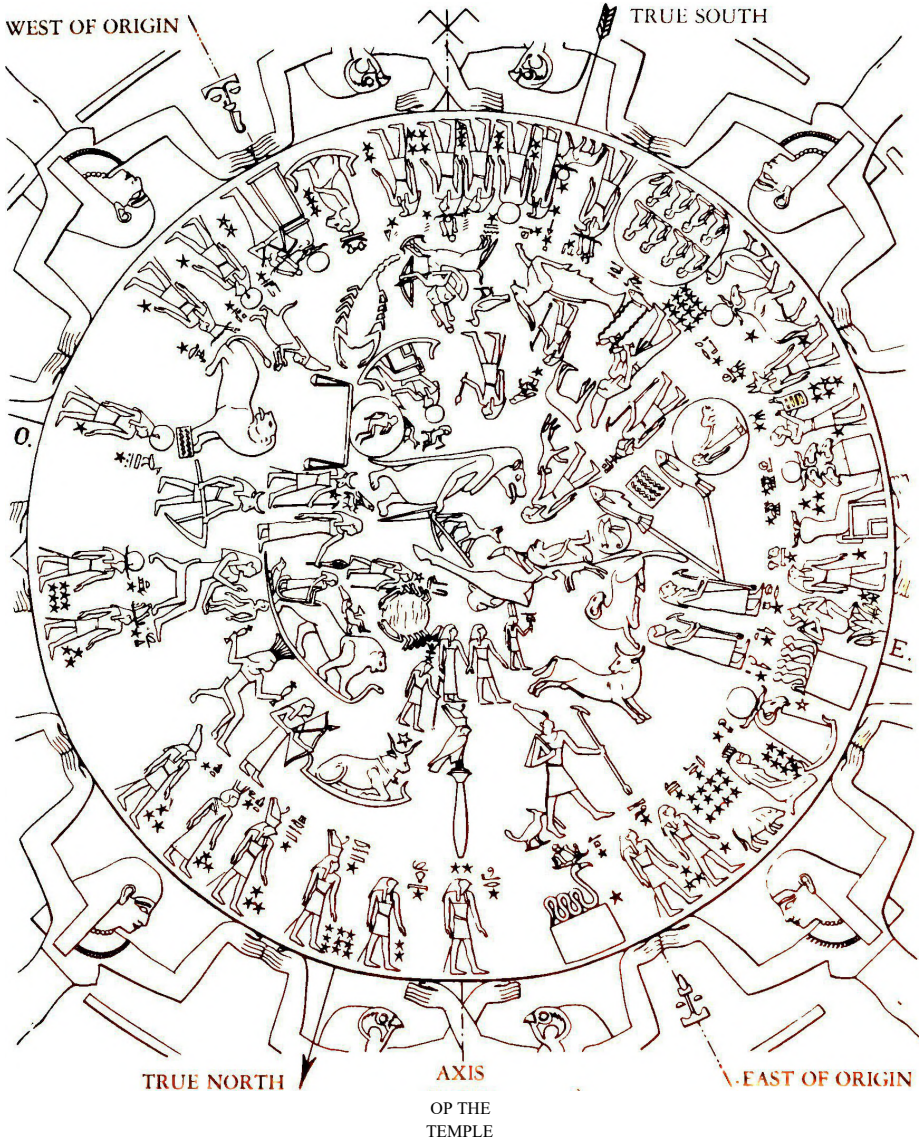 WEST OF ORIGIN
TRUE SOUTH
O.
E.
TRUE NORTH
AXIS
EAST OF ORIGIN
OP THE
TEMPLE